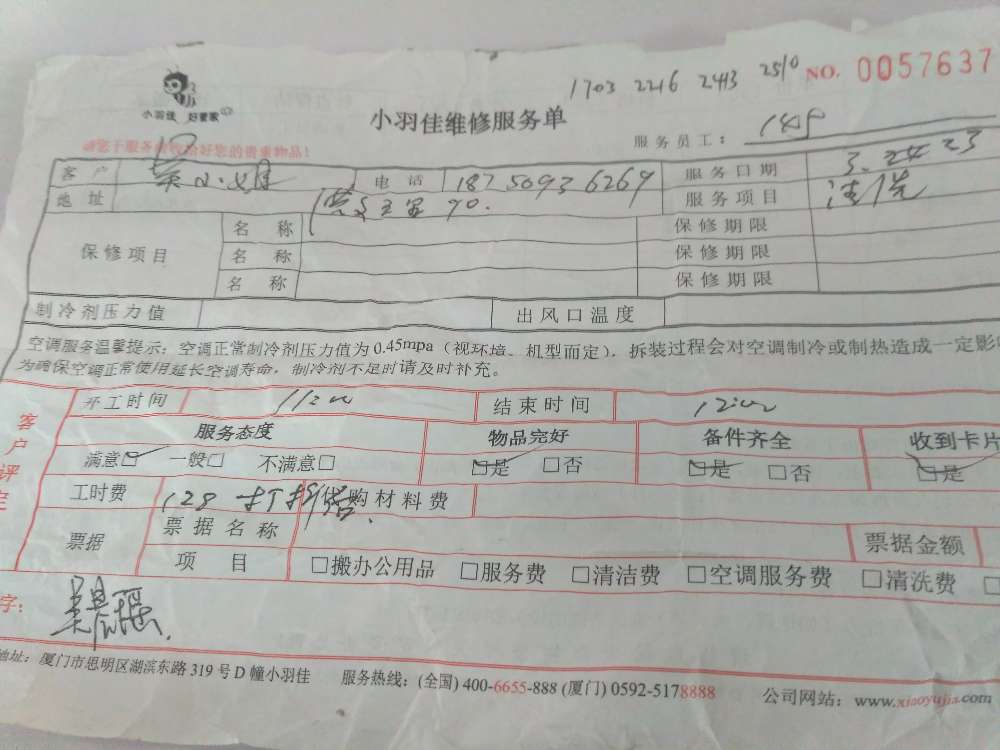 1703 2216 2413 2510 NO. 0057637
小羽佳 好管家
小羽佳维修服务单
服务员工：
请您于服务前收拾好您的贵重物品！
客户 吴小姐 电话 18750936269 服务日期 3.24 23
地址 90. 服务项目 清洗
保修项目 名称 保修期限
名称 保修期限
名称 保修期限
制冷剂压力值 出风口温度
空调服务温馨提示：空调正常制冷剂压力值为0.45mpa（视环境、机型而定），拆装过程会对空调制冷或制热造成一定影响
为确保空调正常使用延长空调寿命，制冷剂不足时请及时补充。
客户评定
开工时间 结束时间
服务态度 物品完好 备件齐全 收到卡片
满意☑ 一般□ 不满意□ ☑是 □否 ☑是 □否 ☑是
工时费 128 购材料费
票据 票据名称 票据金额
项目 □搬办公用品 □服务费 □清洁费 □空调服务费 □清洗费 □
字：
地址：厦门市思明区湖滨东路319号D幢小羽佳 服务热线：(全国) 400-6655-888 (厦门) 0592-5178888 公司网站：www.xiaoyujia.com